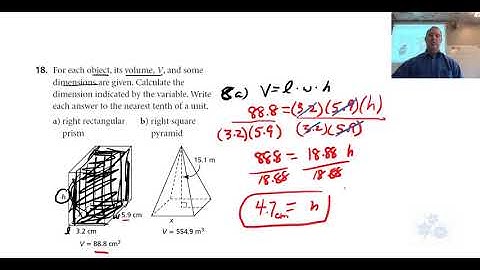 18. For each object, its volume, V, and some
dimensions are given. Calculate the
dimension indicated by the variable. Write
each answer to the nearest tenth of a unit.
a) right rectangular
prism
b) right square
pyramid
h
5.9 cm
w
l
3.2 cm
V = 88.8 cm³
15.1 m
x
V = 554.9 m³
8a) V = l · w · h
88.8 = (3.2)(5.9)(h)
(3.2)(5.9) (3.2)(5.9)
88.8 = 18.88 h
18.88 18.88
4.7cm = h